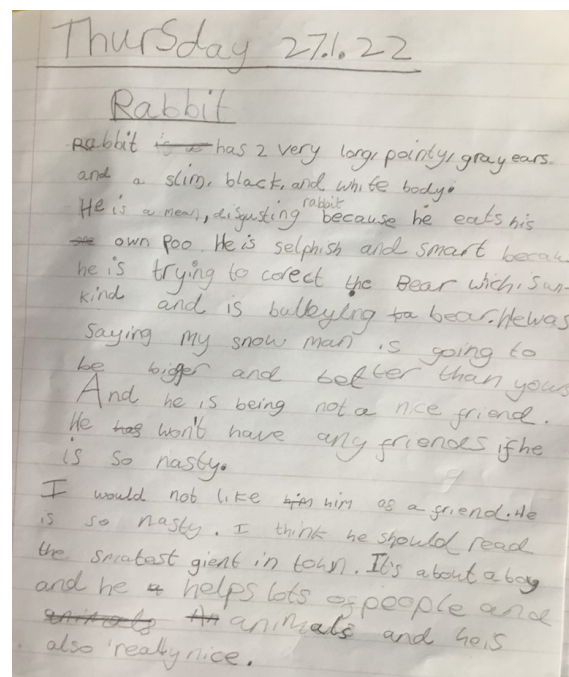 Thursday 27.1.22
Rabbit
Rabbit has 2 very long, pointy, gray ears.
and a slim, black, and white body.
He is a mean, disgusting rabbit because he eats his
own Poo. He is selphish and smart becau
he is trying to corect the Bear wich. is un-
kind and is bulleyling to bear. He was
saying my snow man is going to
be bigger and better than yous
And he is being not a nice friend.
He won't have any friends if he
is so nasty.
I would not like him as a friend. He
is so nasty. I think he should read
the smratest gient in town. It's about a boy
and he helps lots of poople and
animals and he is
also really nice.